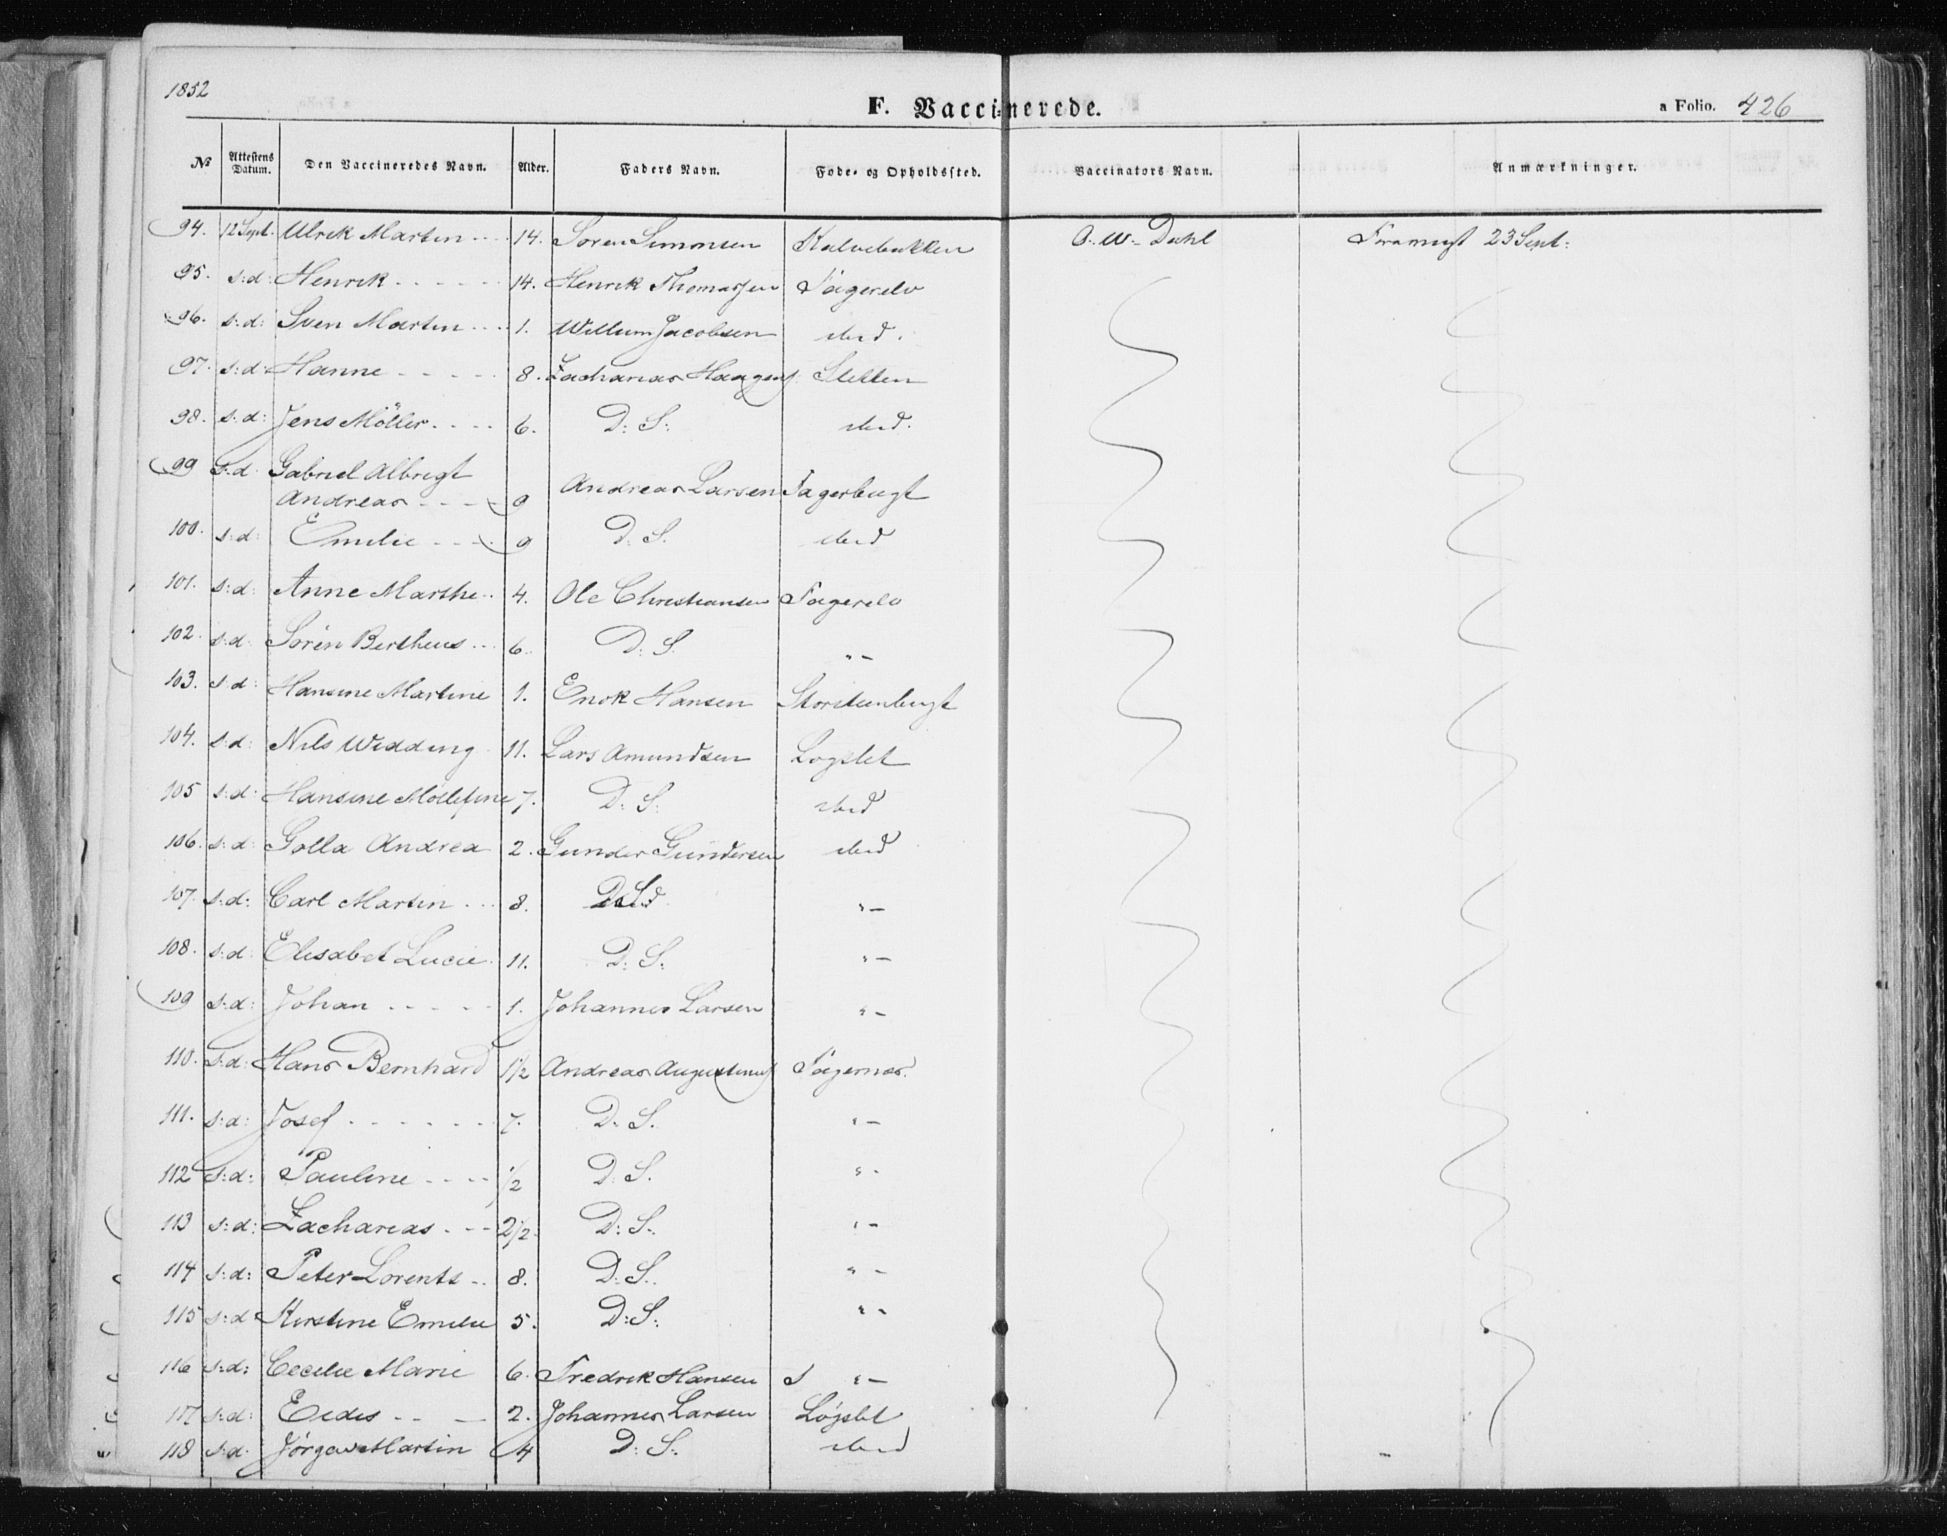 1852
F. Vaccinerede.
a Folio. 426
No Attestens Datum. Den Vaccineredes Navn. Alder. Faders Navn. Føde- og Opholdssted. Vaccinators Navn. Anmærkninger.
94. 12 Sept. Ulrik Martin 14. Søren Simonsen Kalvebakken O. W. Dahl Fremvist 23 Sept:
95. s:d: Henrik 14. Henrik Thomassen Fagerelv
96. s:d: Sven Martin 1. Willum Jacobsen ibid.
97. s:d: Hanne 8. Zacharias Haagens. Sletten
98. s.d: Jens Møller 6. D: S: ibid.
99 s.d. Gabriel Albregt
Andreas 9 Andreas Larsen Fagerbugt
100. s:d: Emilie 9 D. S. ibid
101. s:d: Anne Marthe 4. Ole Christiansen Fagerelv
102. s.d. Sørin Bertheus 6. D: S. "–
103. s.d: Hansine Martine 1. Enok Hansen Storsteenbugt
104. s:d: Nils Wedding 11. Lars Amundsen Løgslet
105 s:d: Hansine Møllefine 7. D: S: ibid
106. s:d: Golla Andrea 2. Gunder Gundersen ibid
107. s.d: Carl Martin 8. "–
108. s.d: Elisabet Lucie 11. D: S: "–
109 s.d: Johan 1. Johannes Larsen "–
110. s.d: Hans Bernhard 1½ Andreas Augustinus. Fagernæs.
111. s:d: Josef 7. D: S. "–
112 s:d: Pauline ½ D: S. "-
113 s:d: Zacharias 2½ D: S. "–
114 s:d: Peter Lorents 8. D: S. "–
115 s:d Kirstine Emilie 5. D:S: "-
116 s:d: Cecilie Marie 6. Fredrik Hansen "–
117 s:d: Eedis 2. Johannes Larsen Løgslet
118 s:d. Jørgen Martin 4 D: S: ibid